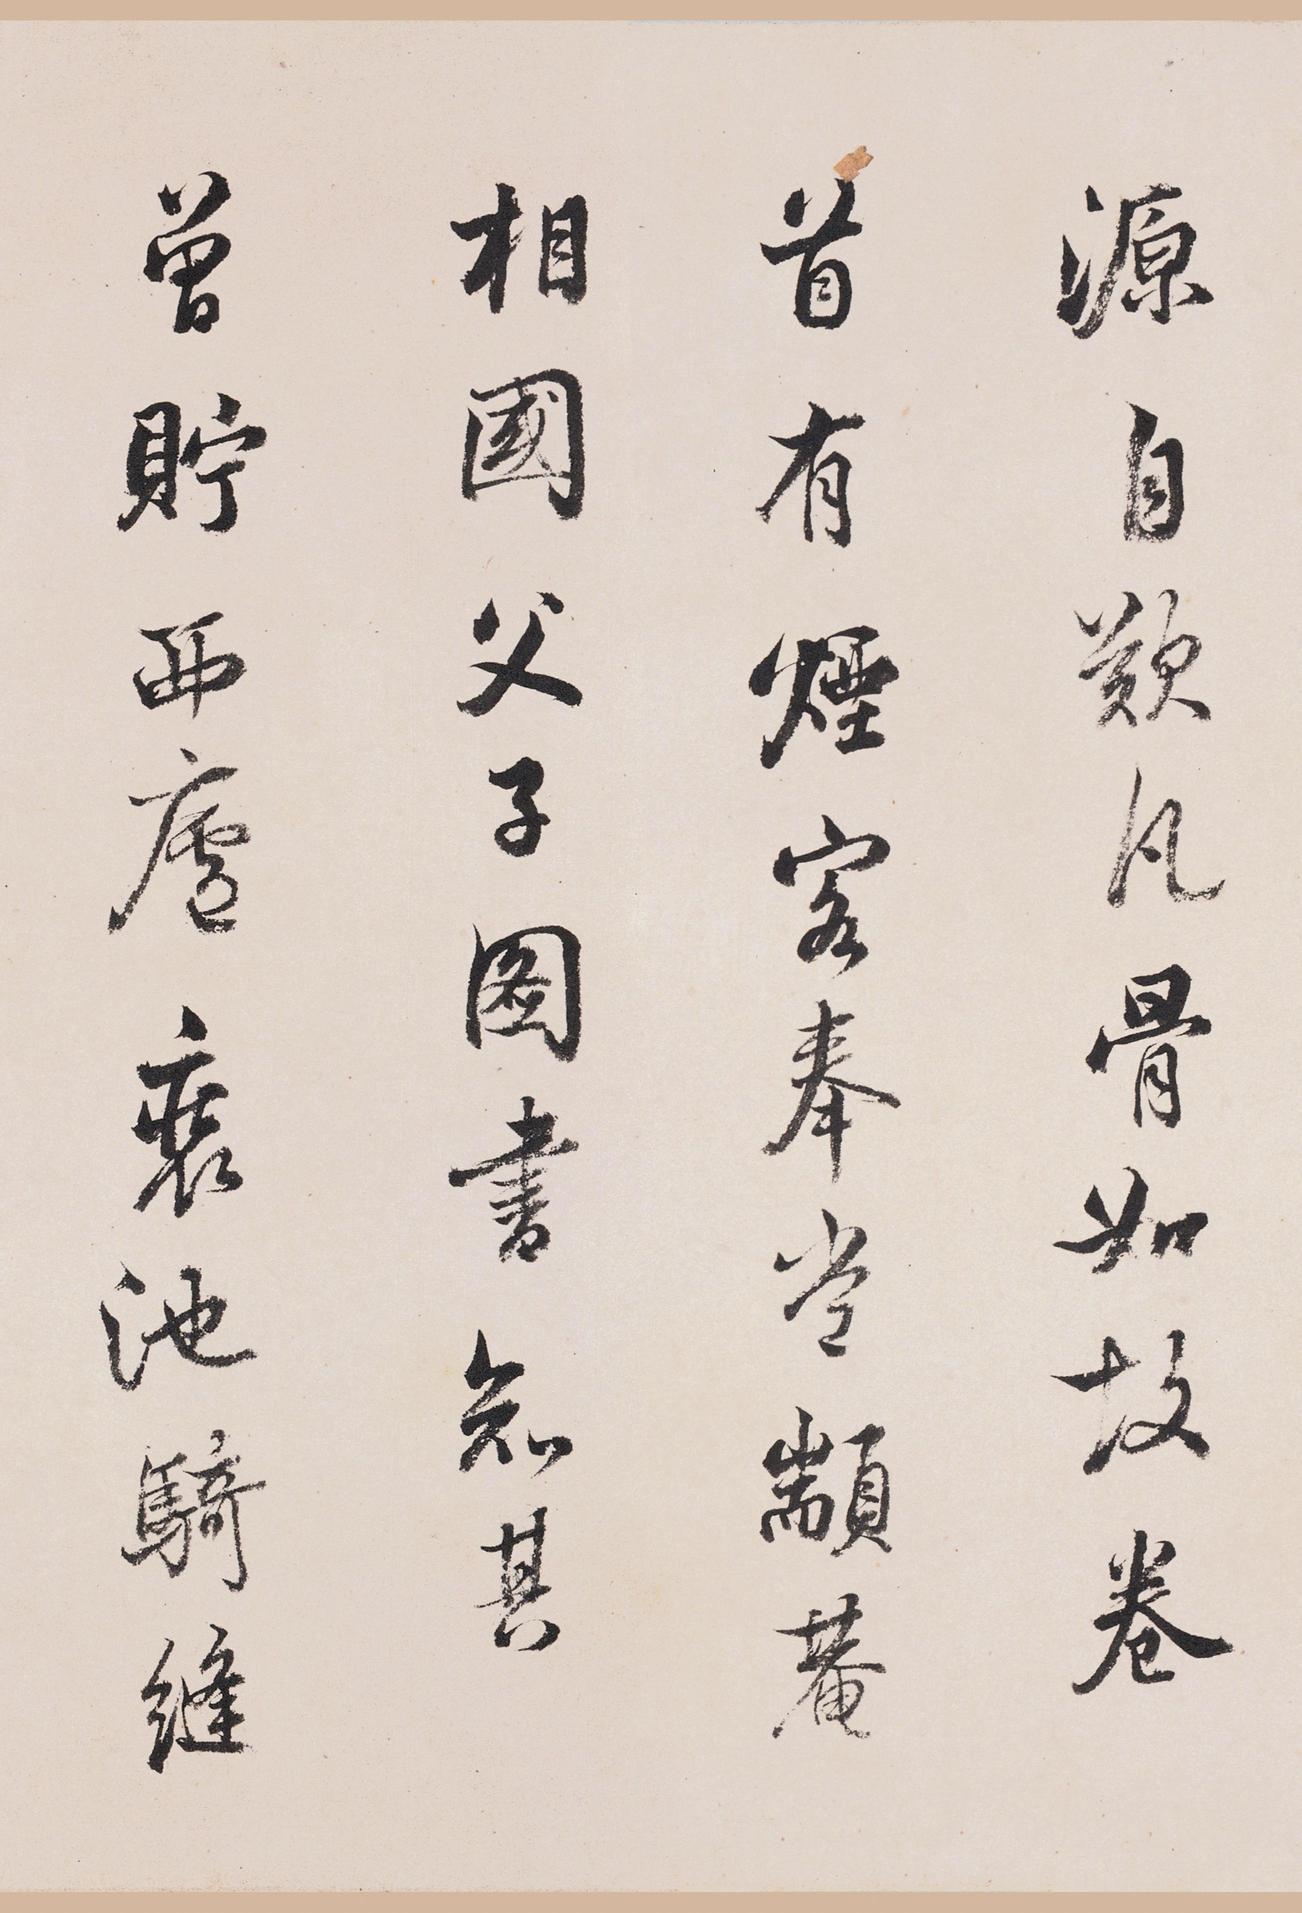 源自歎凡骨如故卷
首有煙客奉常顓菴
相國父子圖書知其
曾貯西廬裘池騎縫